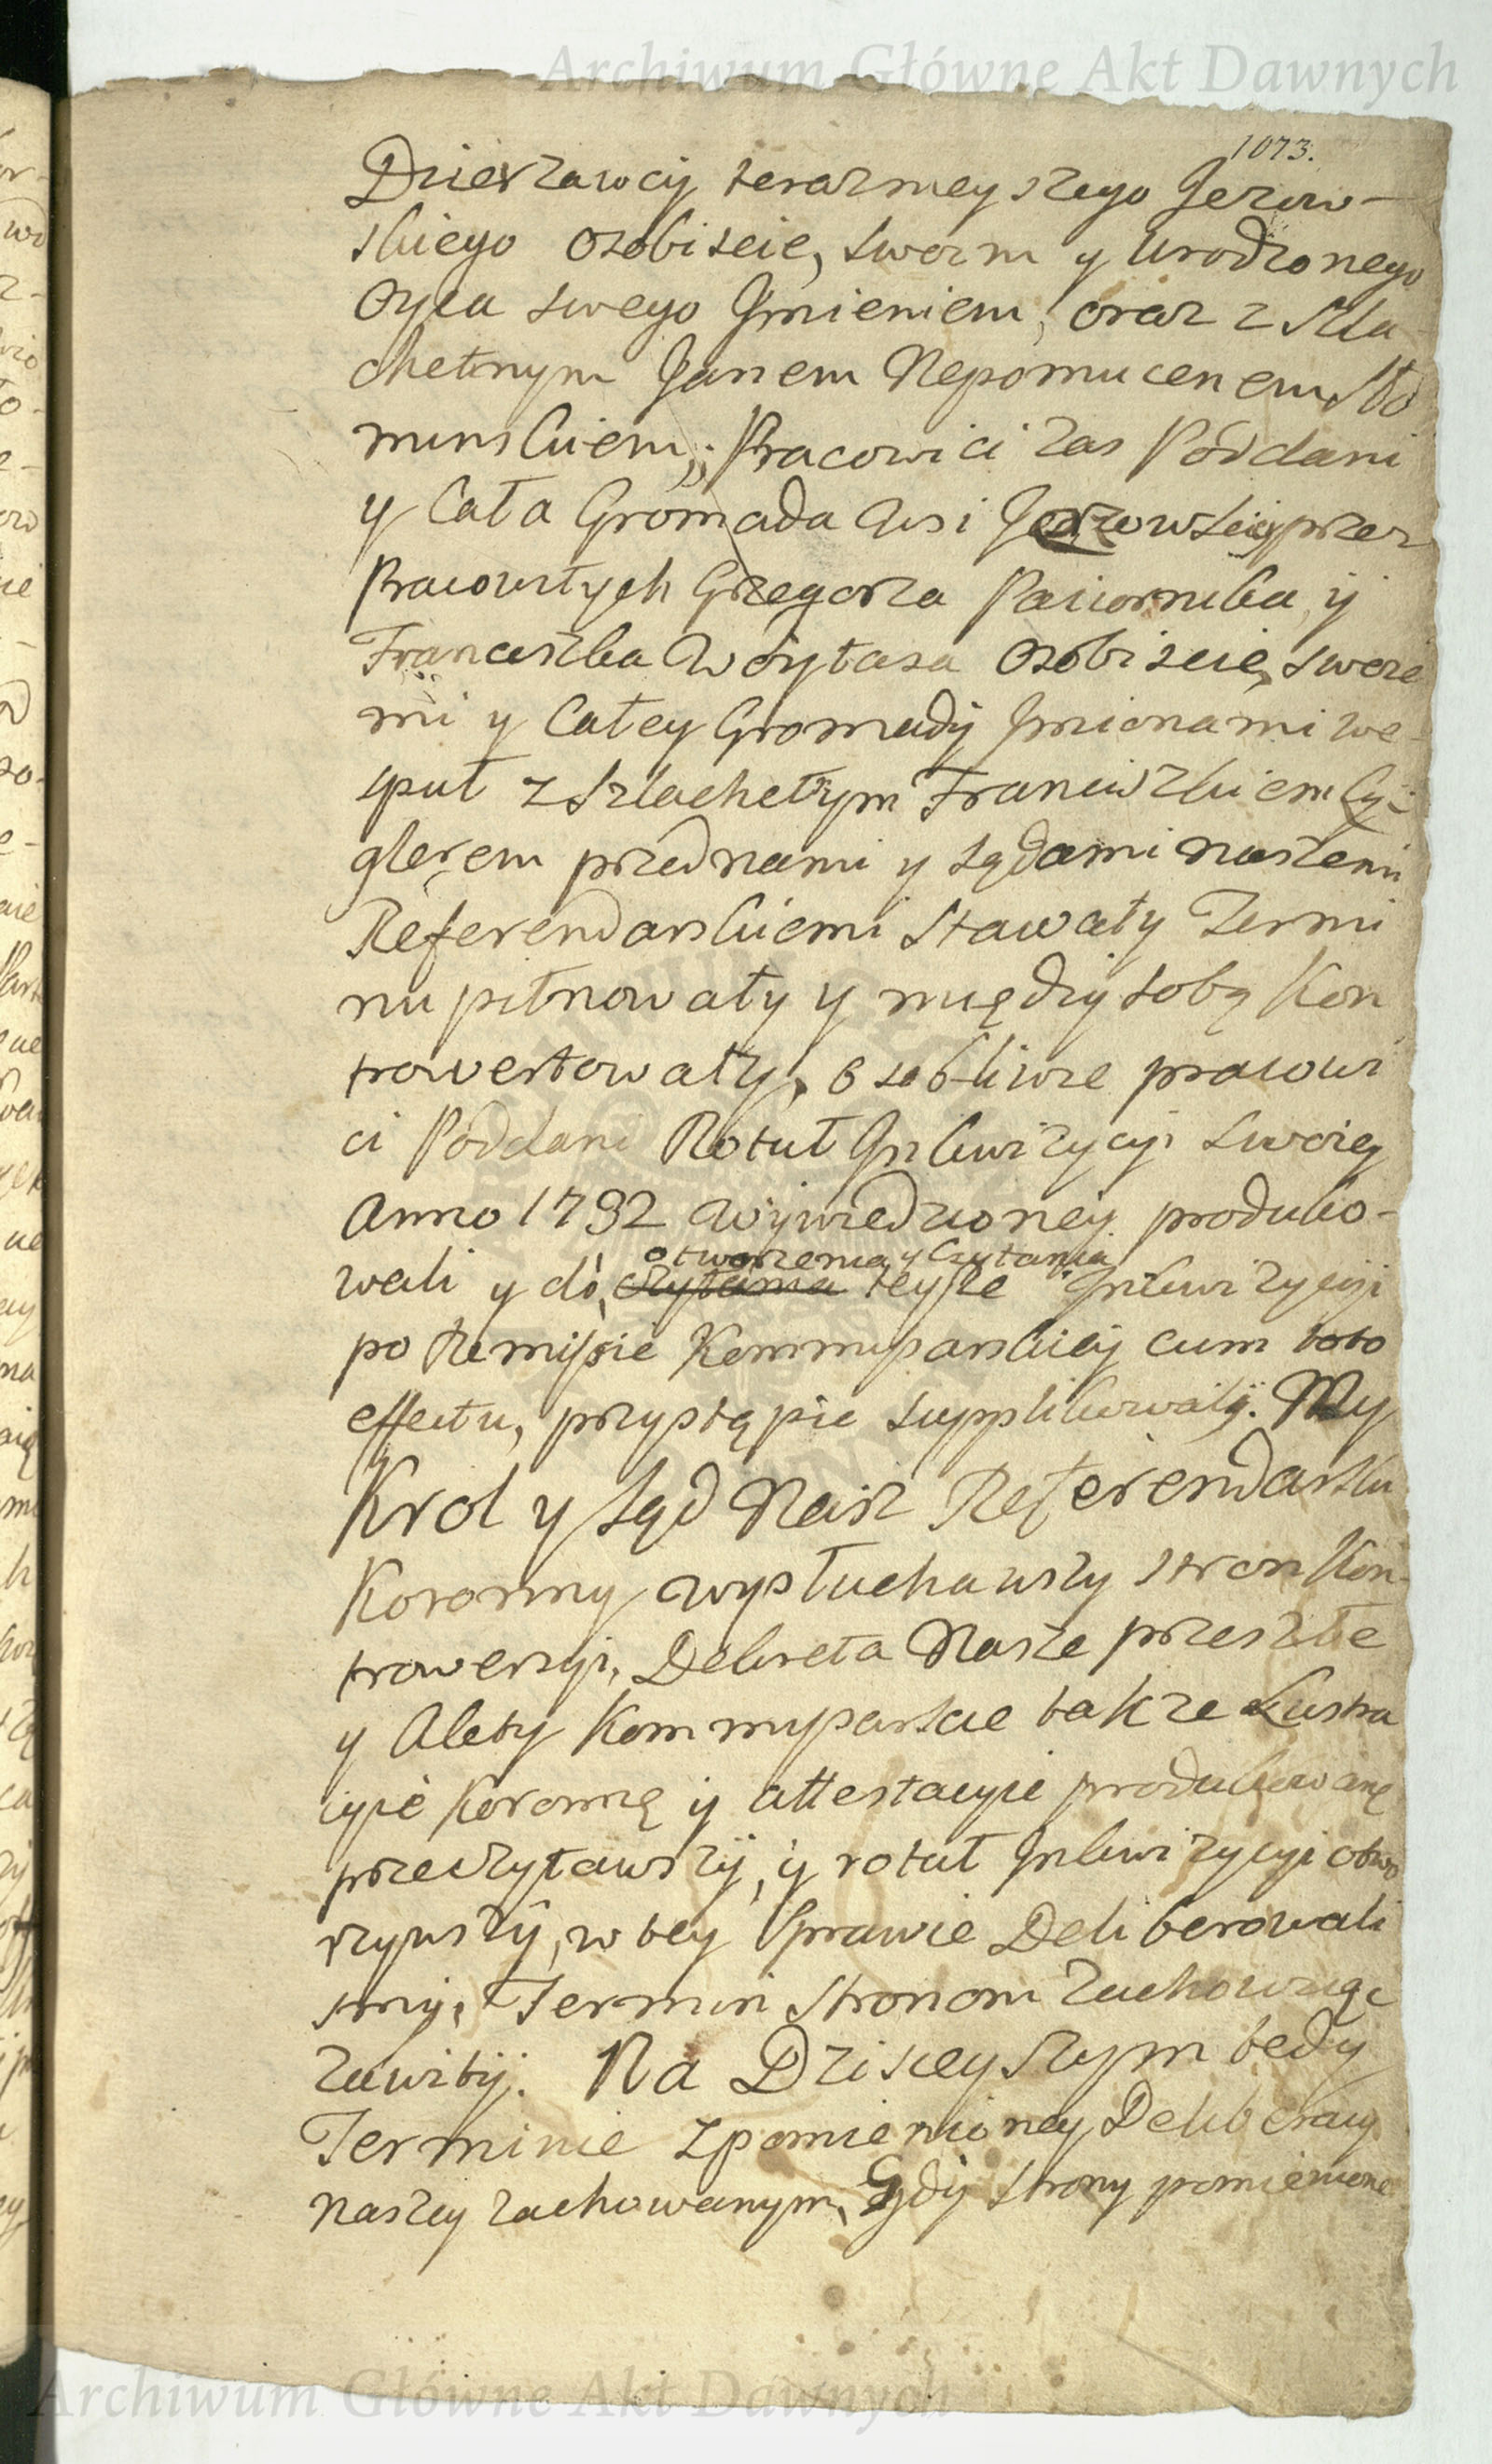 Archiwum Główne Akt Dawnych
1073.
Dzierzawcy teraznieyszego Jezow-
skiego osobiscie, swoim y Urodzonego
Oyca swego Jmieniem, oraz z Szla-
chetnym Janem Nepomucenem
Pracowici zas Poddani
y Cała Gromada Wsi Jezowskiey przez
Pracowitych Grzegorza Paciornika y
Franciszka Woytasa osobiscie, swoie
mi y Całey Gromady Jmionami we-
spuł z Szlachetnym Franciszkiem Cy-
glerem przednami y Sądami naszemi
Referendarskiemi Stawały Termi
nu pilnowały y między sobą Kon
trowertowały, osobliwie pracowi
ci Poddani Rotuł Jnkwizycyi swoiey
Anno 1792 wywiedzioney produko-
wali y do otworzenia y Czytania czytania teyże Jnkwizycyi
po Remissie Kommissarskiey cum toto
effectu, przystąpić supplikowały. My
Krol y Sąd Nasz Referendarski
Koronny wysłuchawszy stron Kon-
trowersyi, Dekreta Nasze przeszłe
y Akty Kommissarskie także Lustra
cyie Koronną y attestacyie produkowane
przeczytawszy, y rotuł Jnkwizycyi otwo
rzywszy, w tey Sprawie Deliberowali
smy, Termin Stronom zachowuiąc
zawity. Na Dzisieyszym tedy
Terminie z pomienioney Deliberacyi
Naszey zachowanym, Gdy Strony pomienione
Archiwum Główne Akt Dawnych